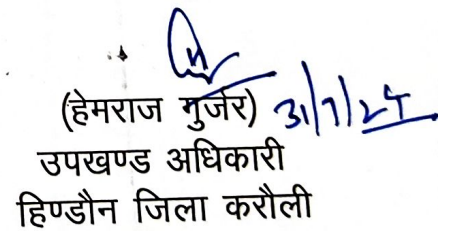 (हेमराज गुर्जर) 31/7/24
उपखण्ड अधिकारी
हिण्डौन जिला करौली